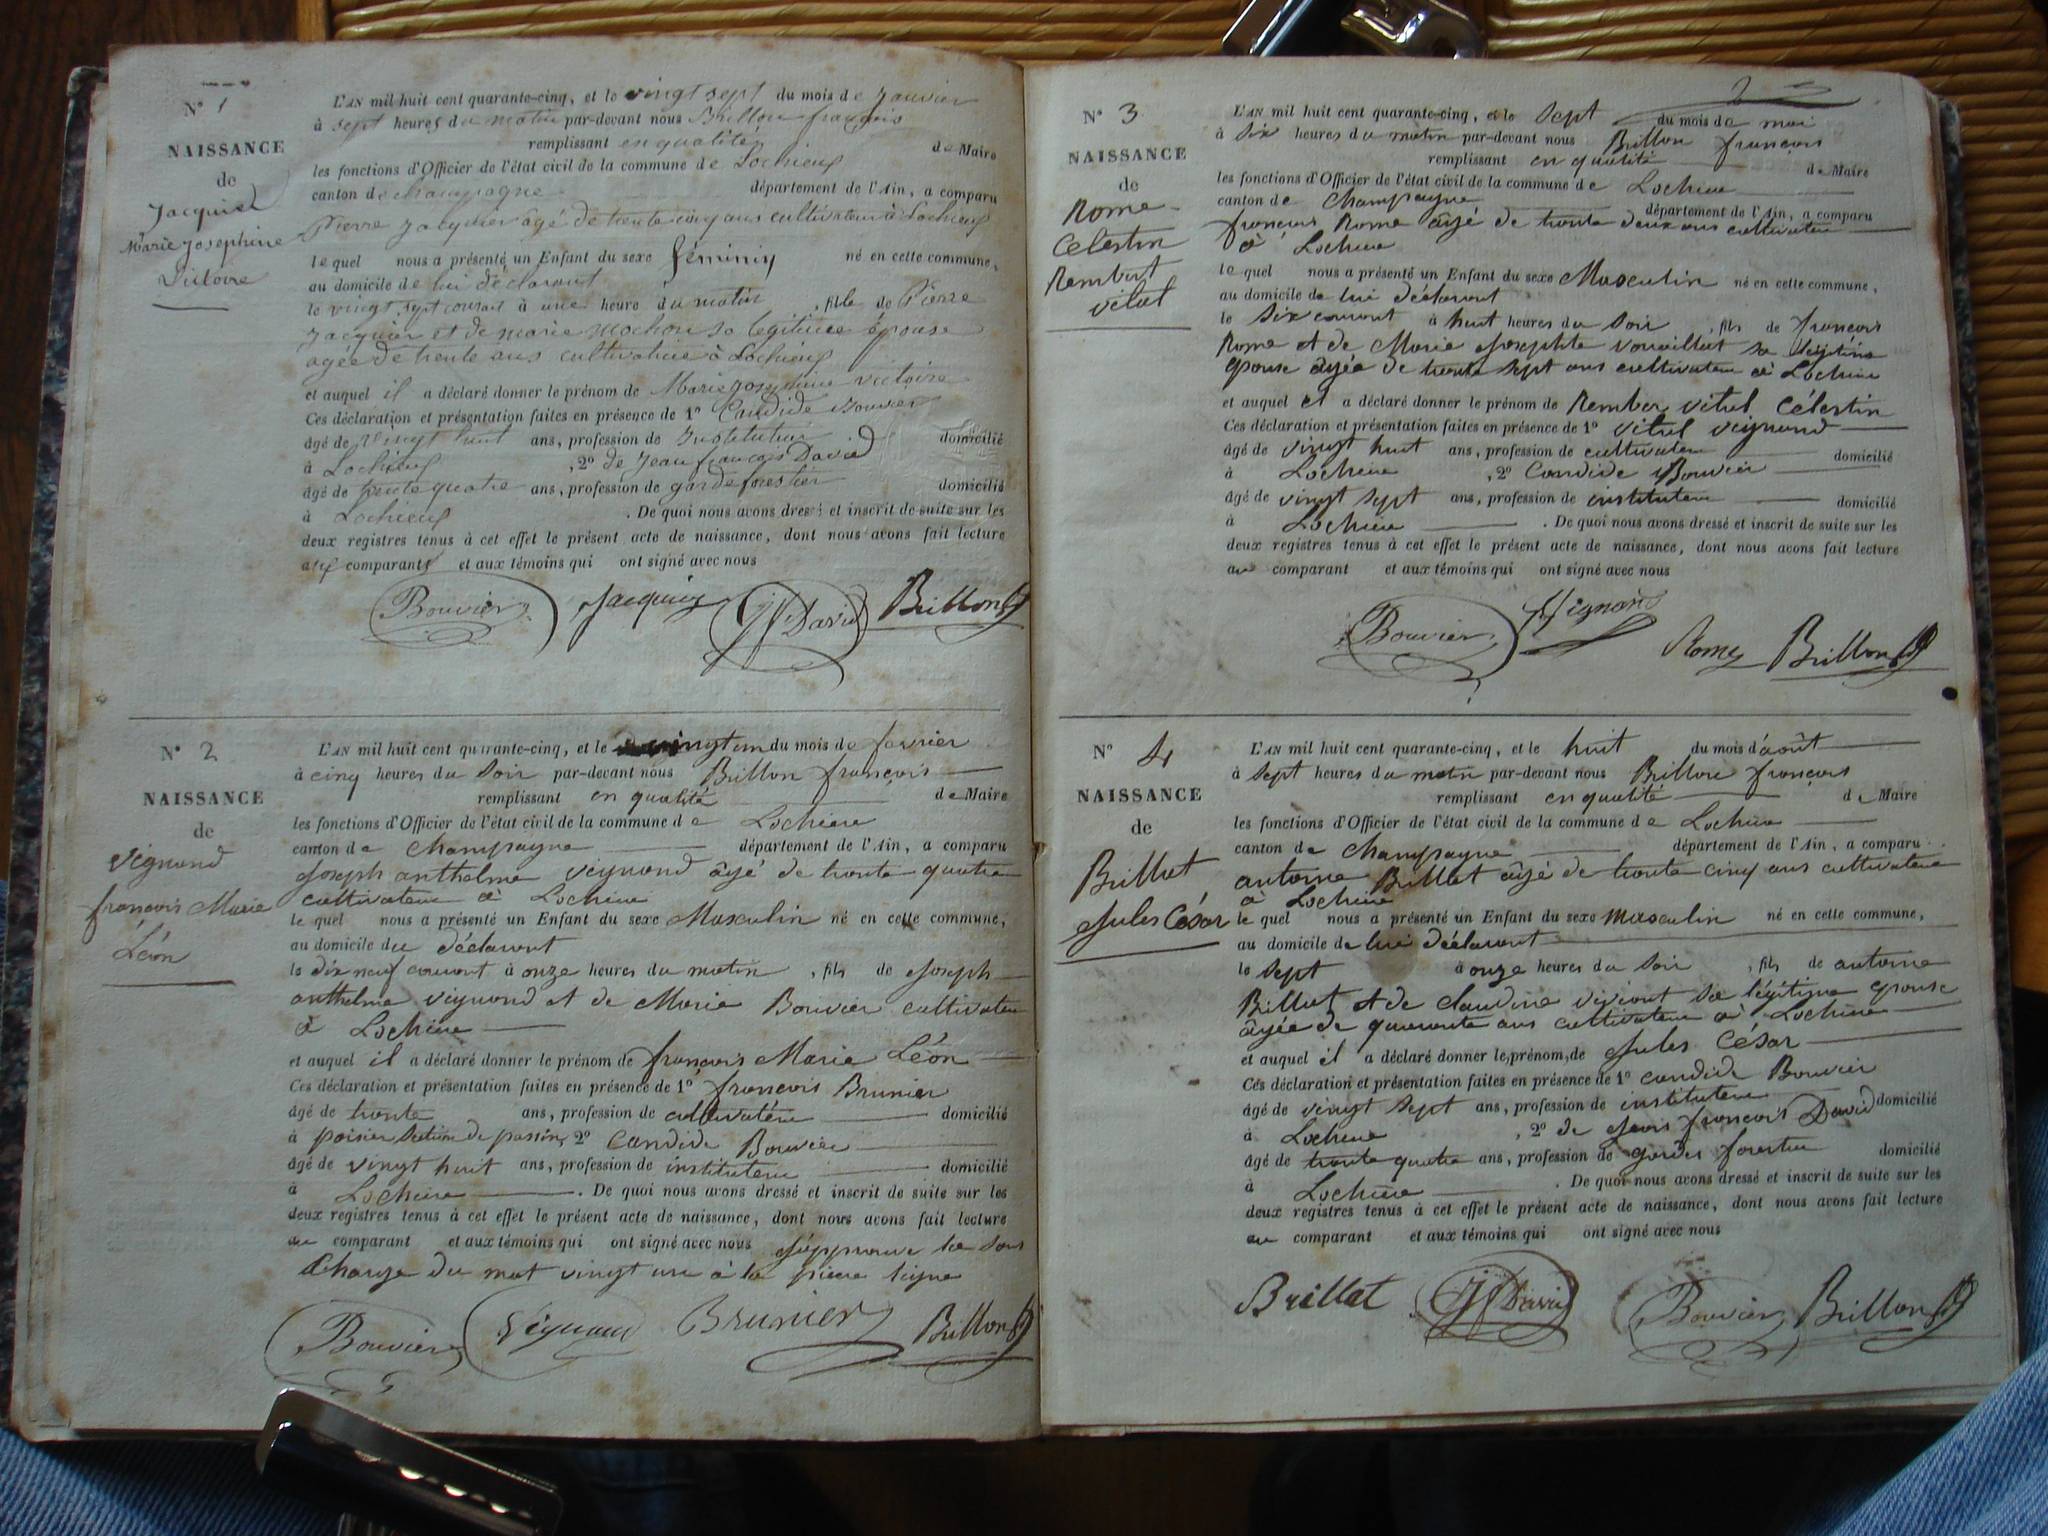 N° 1
NAISSANCE
de
Jacquier
Marie Josephine
Victoire
L'AN mil huit cent quarante-cinq, et le vingt sept du mois de Janvier
à sept heures du matin par-devant nous Brillon françois
remplissant en qualité de Maire
les fonctions d'Officier de l'état civil de la commune de Lochieux
canton de champagne département de l'Ain, a comparu
Pierre Jacquier agé de trente cinq ans cultivateur à Lochieux
le quel nous a présenté un Enfant du sexe féminin né en cette commune,
au domicile de lui déclarant
le vingt sept courant à une heure du matin, fille de Pierre
Jacquier et de marie mochon sa légitime épouse
agée de trente ans cultivatrice à Lochieux
et auquel il a déclaré donner le prénom de Marie Josephine victoire
Ces déclaration et présentation faites en présence de 1° Candide Bouvier
âgé de vingt huit ans, profession de Instituteur domicilié
à Lochieux, 2° de Jean françois David
âgé de trente quatre ans, profession de garde forestier domicilié
à Lochieux. De quoi nous avons dressé et inscrit de suite sur les
deux registres tenus à cet effet le présent acte de naissance, dont nous avons fait lecture
aux comparants et aux témoins qui ont signé avec nous
Bouvier Jacquier JfDavid Brillon
N° 2
NAISSANCE
de
Vignand
françois Marie
Léon
L'AN mil huit cent quarante-cinq, et le vingt un du mois de fevrier
à cinq heures du soir par-devant nous Brillon françois
remplissant en qualité de Maire
les fonctions d'Officier de l'état civil de la commune de Lochieu
canton de Champagne département de l'Ain, a comparu
Joseph anthelme vignand âgé de trente quatre
cultivateur à Lochieu
le quel nous a présenté un Enfant du sexe Masculin né en cette commune,
au domicile du déclarant
le dix neuf courant à onze heures du matin, fils de Joseph
anthelme vignand et de Marie Bouvier cultivateur
à Lochieu
et auquel il a déclaré donner le prénom de françois Marie Léon
Ces déclaration et présentation faites en présence de 1° françois Brunier
âgé de trente ans, profession de cultivateur domicilié
à poisieu section de passin, 2° Candide Bouvier
âgé de vingt huit ans, profession de instituteur domicilié
à Lochieu. De quoi nous avons dressé et inscrit de suite sur les
deux registres tenus à cet effet le présent acte de naissance, dont nous avons fait lecture
au comparant et aux témoins qui ont signé avec nous J'approuve la sur
charge du mot vingt un à la ligne
Bouvier Vignand Brunier Brillon
2
N° 3
NAISSANCE
de
Rome
Celestin
Rembert
vital
L'AN mil huit cent quarante-cinq, et le sept du mois de mai
à six heures du matin par-devant nous Brillon françois
remplissant en qualité de Maire
les fonctions d'Officier de l'état civil de la commune de Lochieu
canton de Champagne département de l'Ain, a comparu
françois Rome âgé de trente deux ans cultivateur
à Lochieu
le quel nous a présenté un Enfant du sexe Masculin né en cette commune,
au domicile de lui déclarant
le six courant à huit heures du soir, fils de françois
Rome et de Marie Josephte sa légitime
épouse âgée de trente sept ans cultivateur à Lochieu
et auquel il a déclaré donner le prénom de Rember vital Célestin
Ces déclaration et présentation faites en présence de 1° vital vignand
âgé de vingt huit ans, profession de cultivateur domicilié
à Lochieu, 2° Candide Bouvier
âgé de vingt sept ans, profession de instituteur domicilié
à Lochieu. De quoi nous avons dressé et inscrit de suite sur les
deux registres tenus à cet effet le présent acte de naissance, dont nous avons fait lecture
au comparant et aux témoins qui ont signé avec nous
Bouvier Vignand Rome Brillon
N° 4
NAISSANCE
de
Brillat
Jules César
L'AN mil huit cent quarante-cinq, et le huit du mois d'août
à sept heures du matin par-devant nous Brillon françois
remplissant en qualité de Maire
les fonctions d'Officier de l'état civil de la commune de Lochieu
canton de Champagne département de l'Ain, a comparu
antoine Brillat âgé de trente cinq ans cultivateur
à Lochieu
le quel nous a présenté un Enfant du sexe masculin né en cette commune,
au domicile de lui déclarant
le sept à onze heures du soir, fils de antoine
Brillat et de claudine sa légitime épouse
âgée de quarante ans cultivateur à Lochieu
et auquel il a déclaré donner le prénom de Jules César
Ces déclaration et présentation faites en présence de 1° candide Bouvier
âgé de vingt sept ans, profession de instituteur domicilié
à Lochieu, 2° de Jean françois David
âgé de trente quatre ans, profession de gardes forestier domicilié
à Lochieu. De quoi nous avons dressé et inscrit de suite sur les
deux registres tenus à cet effet le présent acte de naissance, dont nous avons fait lecture
au comparant et aux témoins qui ont signé avec nous
Brillat JfDavid Bouvier Brillon